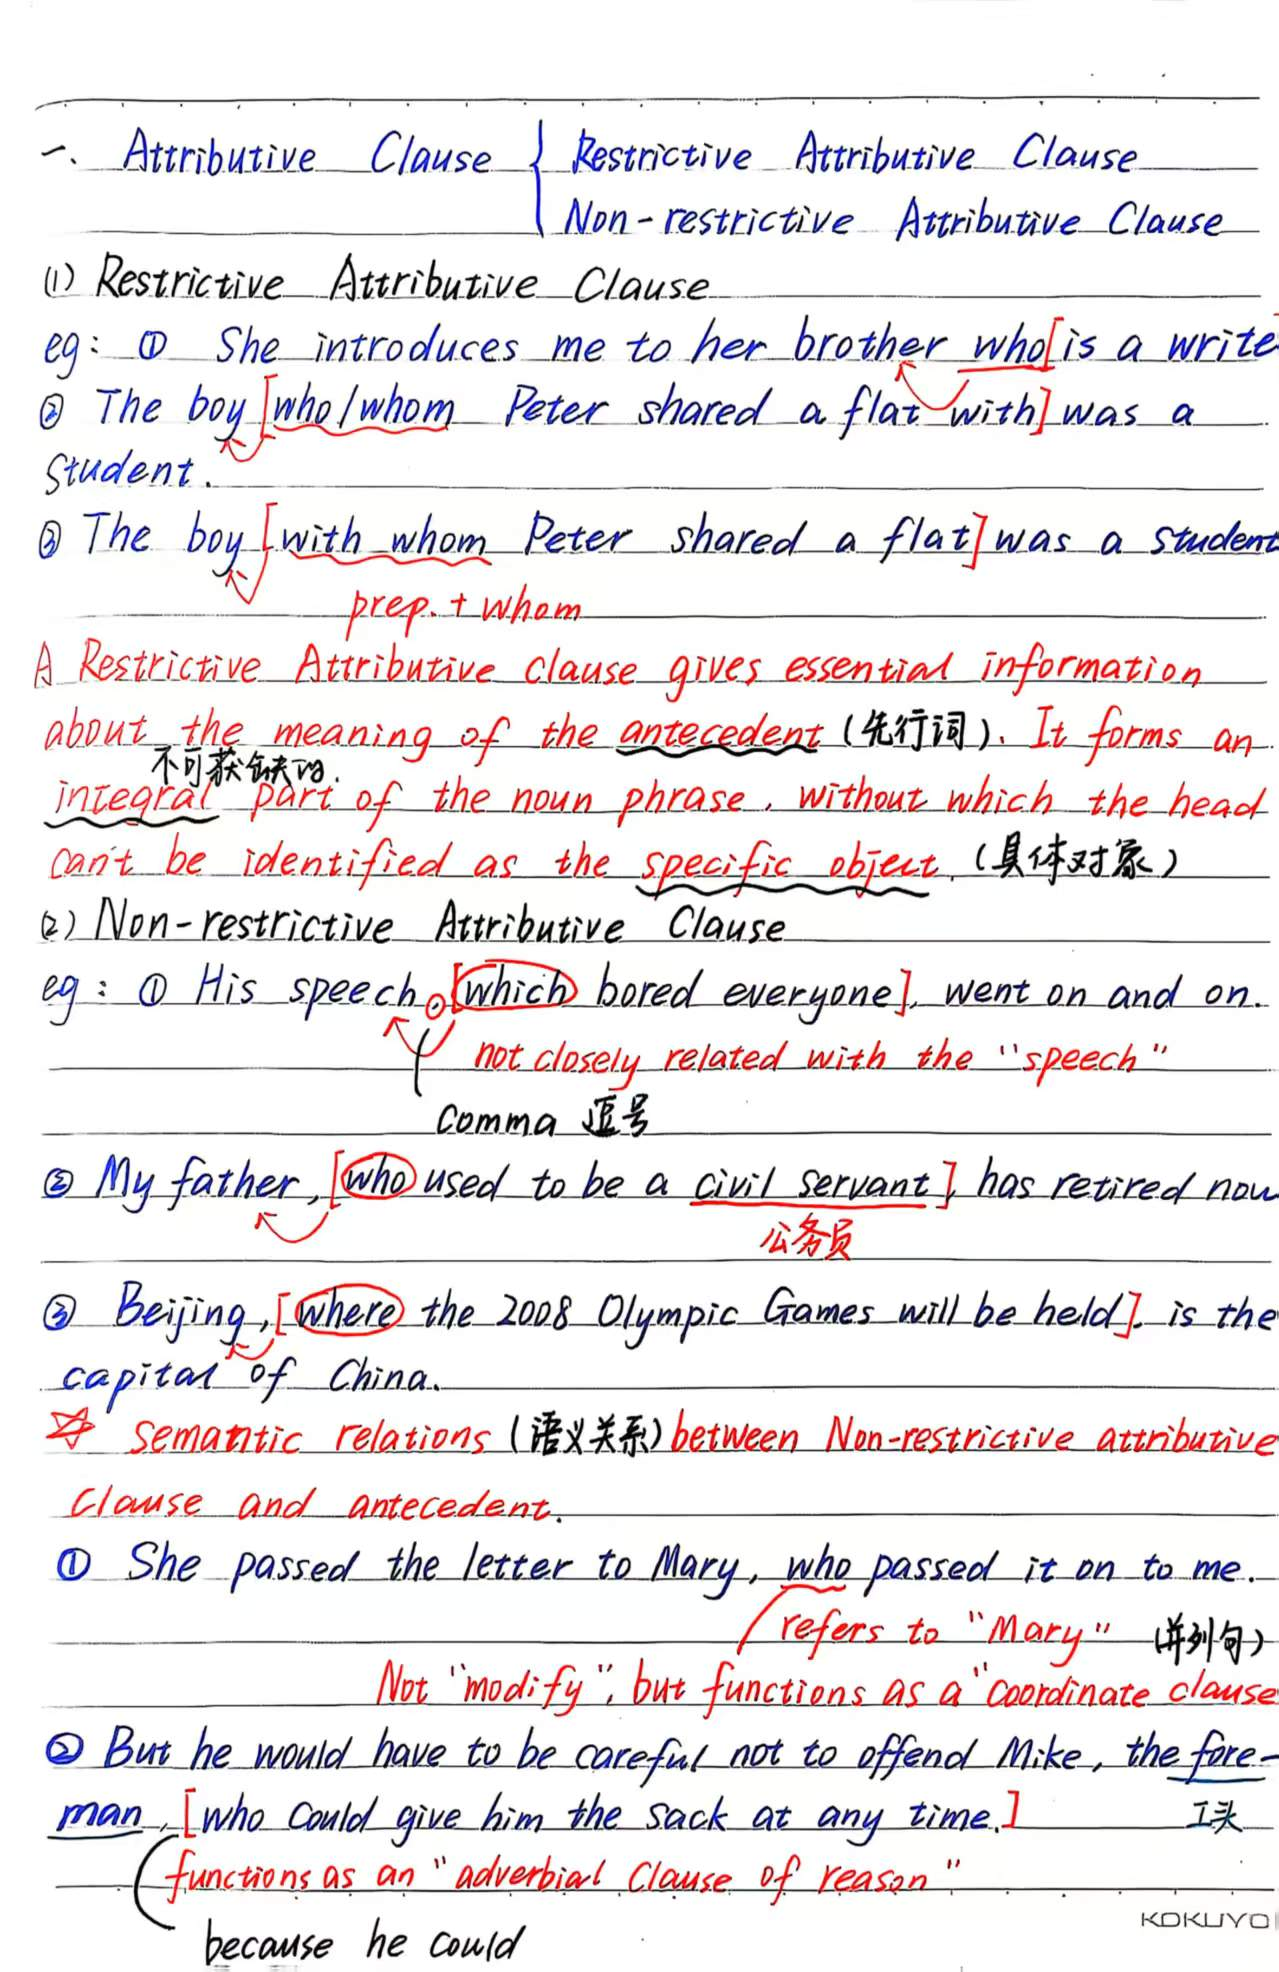 一. Attributive Clause { Restrictive Attributive Clause
Non-restrictive Attributive Clause
(1) Restrictive Attributive Clause
eg: ① She introduces me to her brother who [is a write
② The boy [who/whom Peter shared a flat with] was a
student.
③ The boy [with whom Peter shared a flat] was a student
prep. + whom
A Restrictive Attributive clause gives essential information
about the meaning of the antecedent (先行词). It forms an
不可获缺的.
integral part of the noun phrase, without which the head
can't be identified as the specific object. (具体对象)
(2) Non-restrictive Attributive Clause
eg: ① His speech, [which bored everyone], went on and on.
not closely related with the "speech"
Comma 逗号
② My father, [who used to be a civil servant], has retired now
公务员
③ Beijing, [where the 2008 Olympic Games will be held], is the
capital of China.
☆ semantic relations (语义关系) between Non-restrictive attributive
Clause and antecedent.
① She passed the letter to Mary, who passed it on to me.
refers to "Mary" (并列句)
Not "modify", but functions as a "coordinate clause
② But he would have to be careful not to offend Mike, the fore-
man, [who could give him the sack at any time.] 工头
functions as an "adverbial Clause of reason"
KOKUYO
because he could